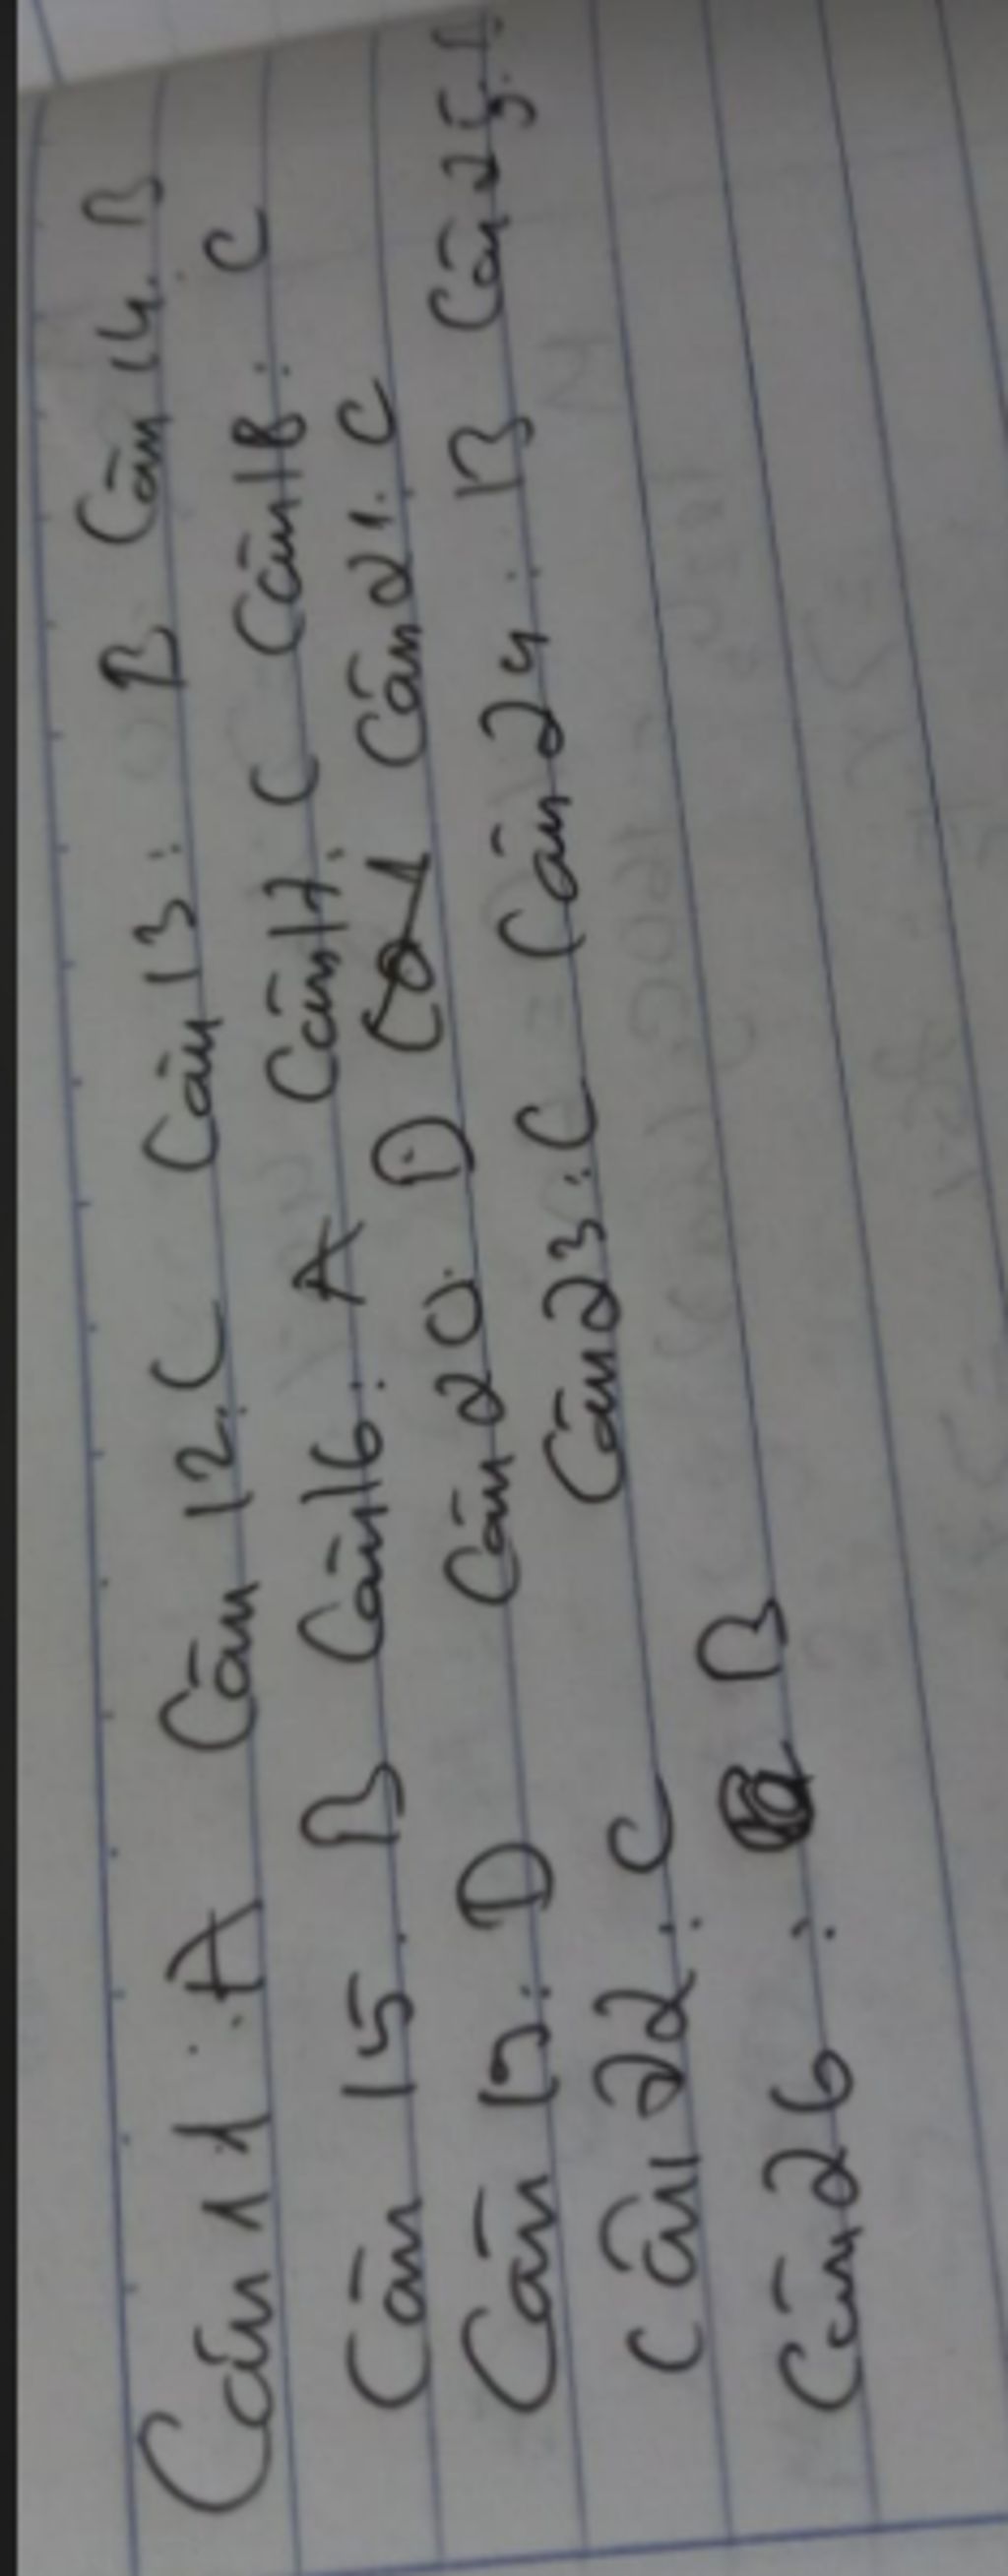 Câu 11. A Câu 12. C Câu 13: B Câu 14. B
Câu 15. B Câu 16: A Câu 17. C Câu 18: C
Câu 19: D Câu 20. D Câu 21. C
Câu 22: C Câu 23: C Câu 24: B Câu 25.
Câu 26: B